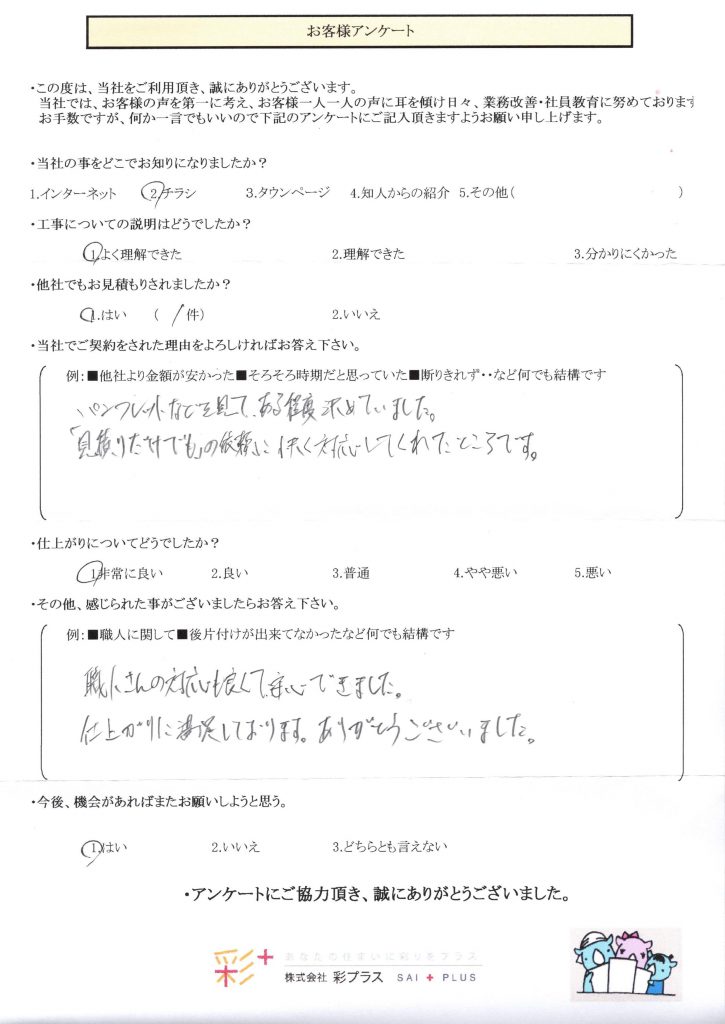 お客様アンケート
・この度は、当社をご利用頂き、誠にありがとうございます。
当社では、お客様の声を第一に考え、お客様一人一人の声に耳を傾け日々、業務改善・社員教育に努めております
お手数ですが、何か一言でもいいので下記のアンケートにご記入頂きますようお願い申し上げます。
・当社の事をどこでお知りになりましたか？
1.インターネット 2.チラシ 3.タウンページ 4.知人からの紹介 5.その他( )
・工事についての説明はどうでしたか？
1.よく理解できた 2.理解できた 3.分かりにくかった
・他社でもお見積もりされましたか？
1.はい ( 1 件) 2.いいえ
・当社でご契約をされた理由をよろしければお答え下さい。
例：■他社より金額が安かった■そろそろ時期だと思っていた■断りきれず・・など何でも結構です
パンフレットなどを見て、ある程度決めていました。
「見積りだけでも」の依頼に快く対応してくれたところです。
・仕上がりについてどうでしたか？
1.非常に良い 2.良い 3.普通 4.やや悪い 5.悪い
・その他、感じられた事がございましたらお答え下さい。
例：■職人に関して■後片付けが出来てなかったなど何でも結構です
職人さんの対応も良くて、安心できました。
仕上がりに満足しております。ありがとうございました。
・今後、機会があればまたお願いしようと思う。
1.はい 2.いいえ 3.どちらとも言えない
・アンケートにご協力頂き、誠にありがとうございました。
彩+ あなたの住まいに彩りをプラス
株式会社 彩プラス SAI + PLUS